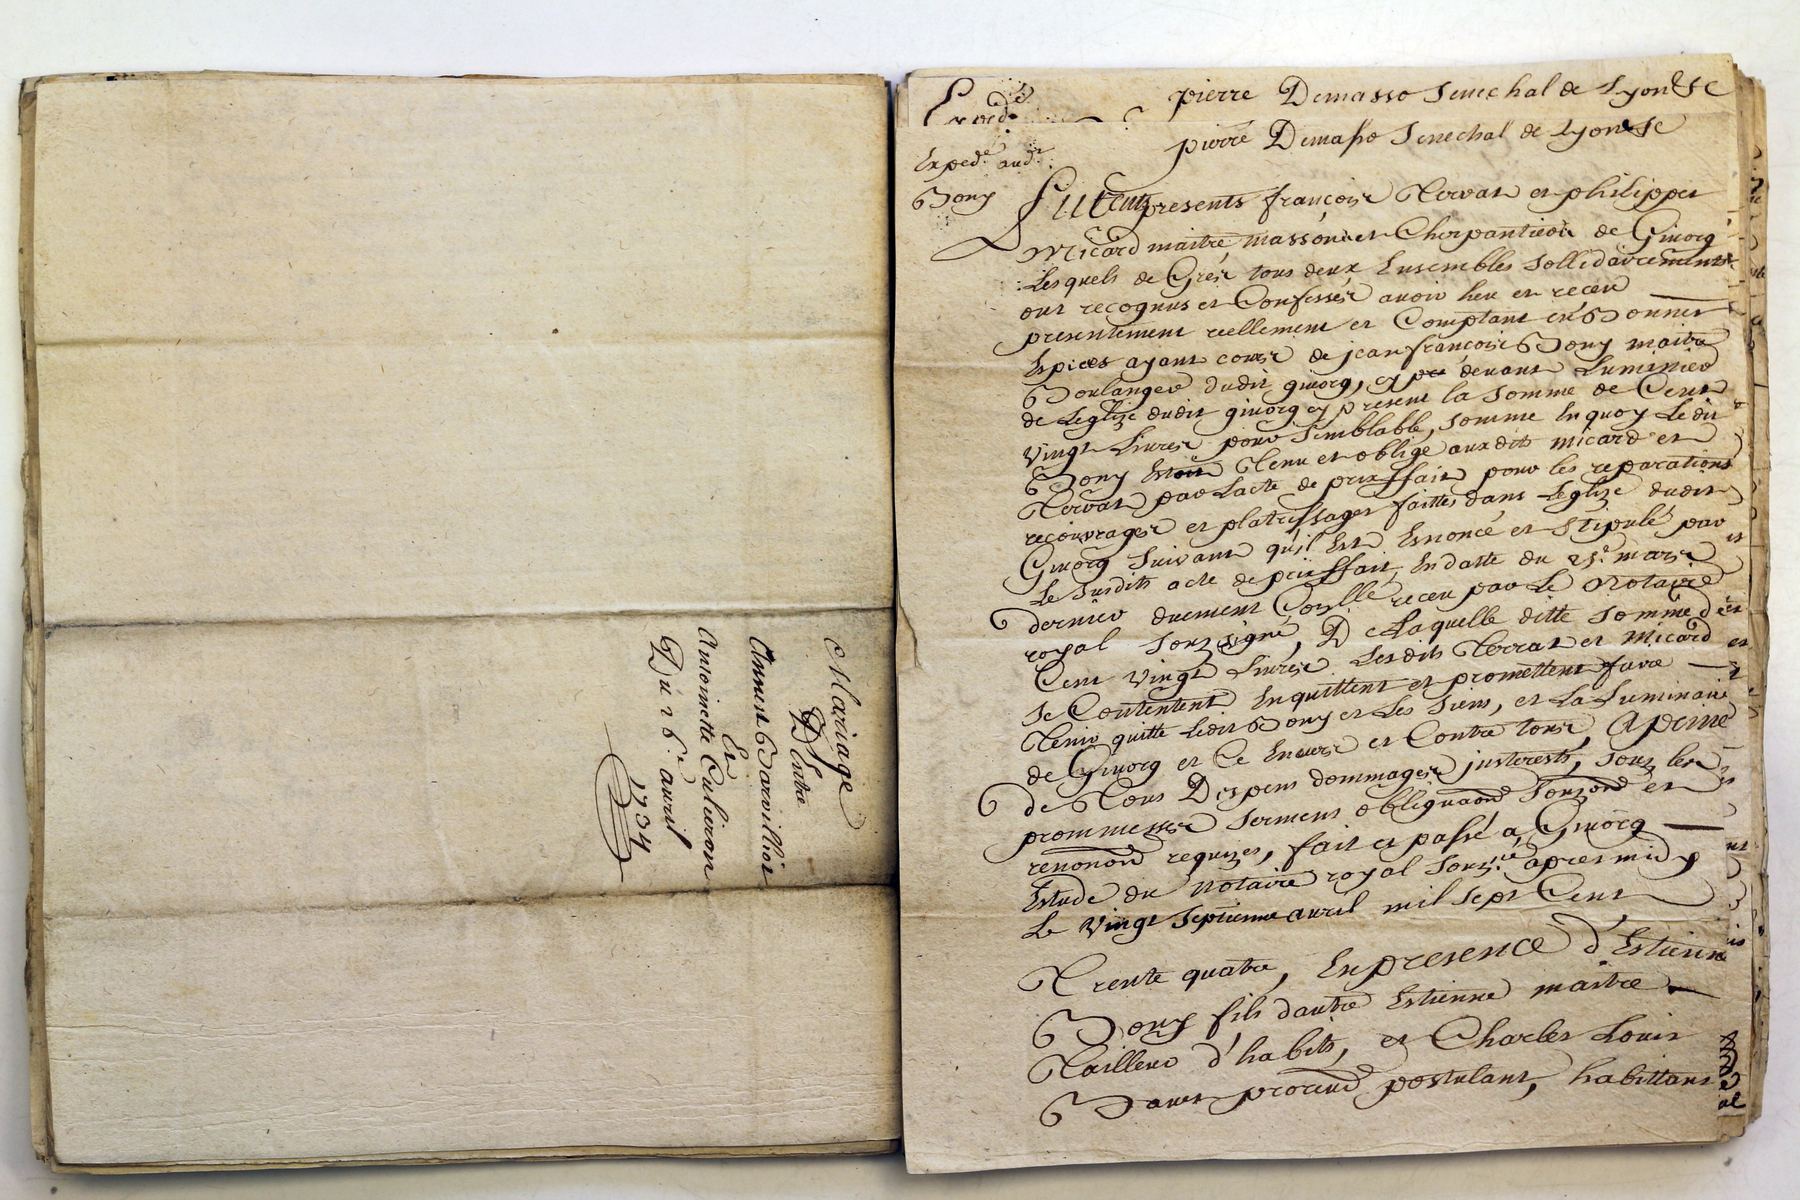 Mariage
Entre
Annest Barvillier
Et
Antoinette Culieron
Du 26e. avril
1734
pierre Demasso Senechal de Lyon &c
pierre Demasso Senechal de Lyon &c
Exped.é aud.t
Bony
Furent presents françois Terrat et philippes
Micard maitre masson et Charpantier de Givorg
Lesquels de Gré tous deux Ensembles sollidairement
ont recognus et Confessé avoir heu et receu
presentement reellement et Comptant en Bonnes
Espices ayant cours de jean françois Bony maitre
Boulanger dudit givorg, cy devant Luminier
de Leglize dudit givorg cy present la somme de Cent
Vingt Livres pour semblable somme En quoy Ledit
Bony Estoit Tenu et obligé auxdits Micard et
Terrat par Lacte de prixffait pour les reparations
recouvrages et platrissages faittes dans Leglize dudit
Givorg suivant qu'il Est Enoncé et stipulé par
Le susdits acte de prixffait En datte du 25e. mars
dernier duement Conllé receu par Le Notaire
royal souzsigné, De Laquelle ditte somme de
Cent Vingt Livres Lesdits Terrat et Micard
se Contentent En quittent et promettent faire
Tenir quitte Ledit Bony et Les Siens, et La Luminaire
de Givorg et Ce Envers et Contre tous, A peine
de Tous Despens dommages justerests, souz les
prommesses serment obligaõns souzõns et
renonõns requizes, fait et passé a Givorg
Estude du Notaire royal souz.né apres midy
Le Vingt Septieme avril mil Sept Cent
Trente quatre, En presence d'Estienne
Bony fils dautre Estienne maitre
Tailleur d'habits, et Charles Louis
procur postulant, habittans